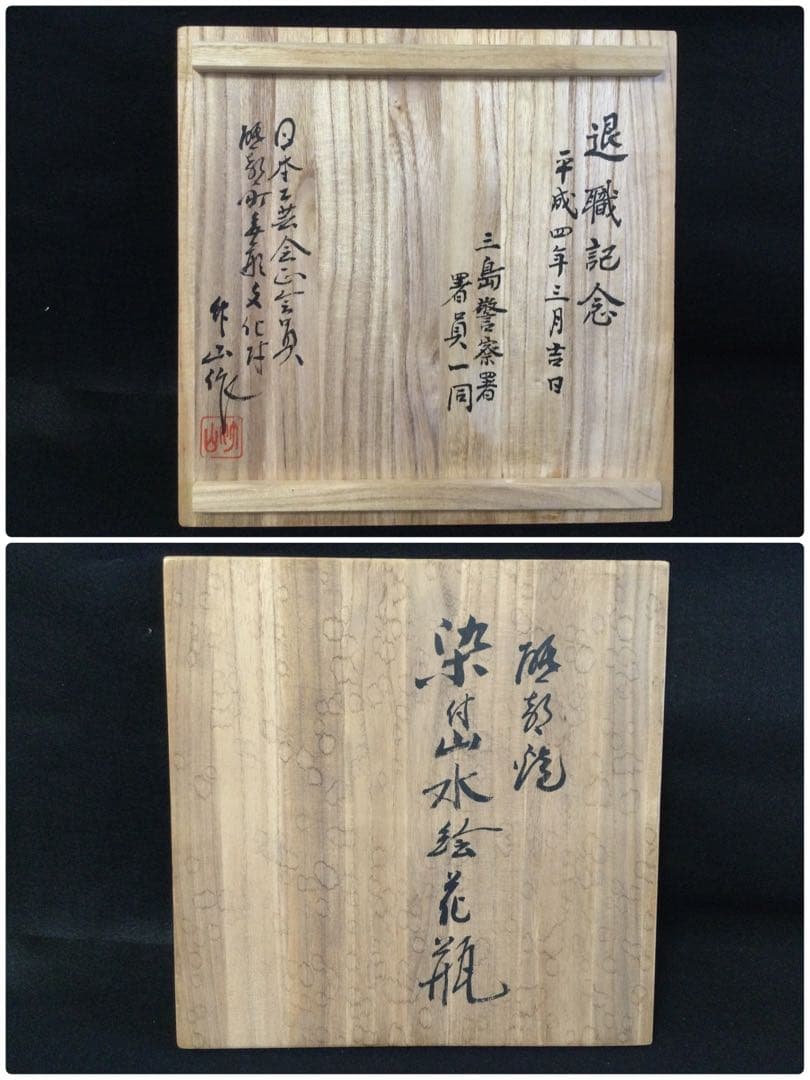 退職記念
平成四年三月吉日
三島警察署
署員一同
日本工芸会正会員
砥部町無形文化財
竹山作
竹山
砥部焼
染付山水絵花瓶